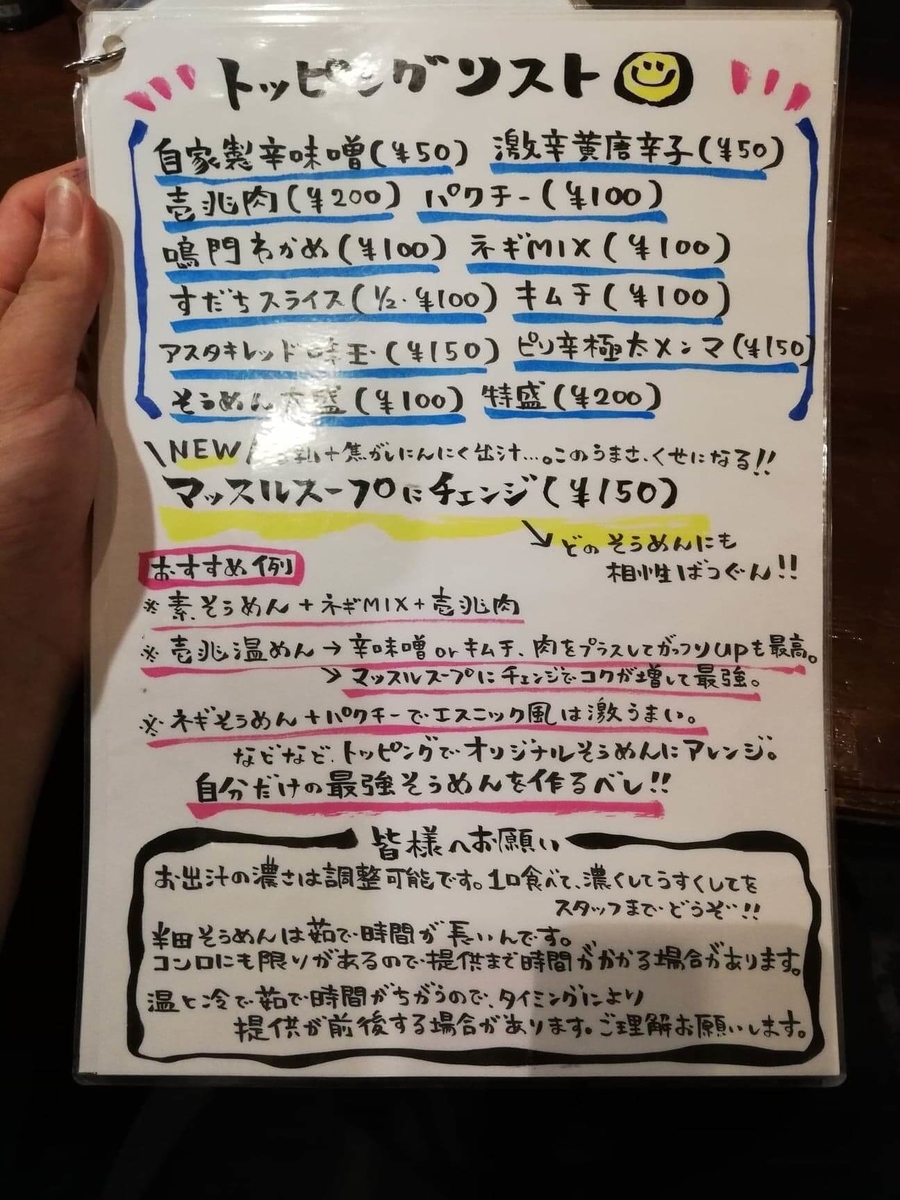 トッピングリスト
自家製辛味噌(¥50) 激辛黄唐辛子(¥50)
壱兆肉(¥200) パクチー(¥100)
鳴門わかめ(¥100) ネギMIX(¥100)
すだちスライス(1/2・¥100) キムチ(¥100)
アスタキレッド味玉・(¥150) ピリ辛極太メンマ(¥150)
そうめん大盛(¥100) 特盛(¥200)
\NEW/ 乳+焦がしにんにく出汁…。このうまさ、くせになる!!
マッスルスープにチェンジ(¥150)
→どのそうめんにも
相性ばつぐん!!
おすすめ例
※素そうめん+ネギMIX+壱兆肉
※壱兆温めん→辛味噌orキムチ、肉をプラスしてがっつりupも最高。
→マッスルスープにチェンジでコクが増して最強。
※ネギそうめん+パクチーでエスニック風は激うまい。
などなど、トッピングでオリジナルそうめんにアレンジ。
自分だけの最強そうめんを作るべし!!
皆様へお願い
お出汁の濃さは調整可能です。1口食べて、濃くしてうすくしてを
スタッフまでどうぞ!!
半田そうめんは茹で時間が長いんです。
コンロにも限りがあるので提供まで時間ががかる場合があります。
温と冷で茹で時間がちがうので、タイミングにより
提供が前後する場合があります。ご理解お願いします。